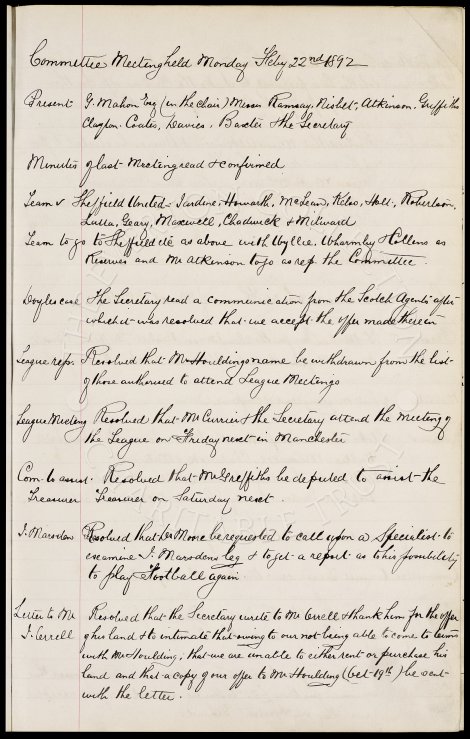 Committee Meeting held Monday Feby 22nd 1892
Present G. Mahon Esq (in the chair) Messrs Ramsay, Nisbet, Atkinson, Griffiths
Clayton, Coates, Davies, Baxter & the Secretary
Minutes of last Meeting read & confirmed
Team v Sheffield United - Jardine, Howarth, McLean, Kelso, Holt, Robertson,
Latta, Geary, Maxwell, Chadwick & Milward
Team to go to Sheffield etc as above with Wyllie, Wharmby & Collens as
Reserves and Mr Atkinson to go as rep the Committee.
Doyles case The Secretary read a communication from the Scotch Agents after
which it was resolved that we accept the offer made therein
League reps. Resolved that Mr Houldings name be withdrawn from the list
of those authorised to attend League Meetings
League Meeting Resolved that Mr Currier & the Secretary attend the meeting of
the League on Friday next in Manchester
Com. to assist Resolved that Mr Griffiths be deputed to assist the
Treasurer Treasurer on Saturday next.
J. Marsden Resolved that Dr Moore be requested to call upon a Specialist to
examine J. Marsdens leg & to get a report as to his possibility
to play Football again.
Letter to Mr Resolved that the Secretary write to Mr Orrell & thank him for the offer
J. Orrell of his land & to intimate that owing to our not being able to come to terms
with Mr Houlding, that we are unable to either rent or purchase his
land and that a copy of our offer to Mr Houlding (Oct. 19th) be sent
with the letter.